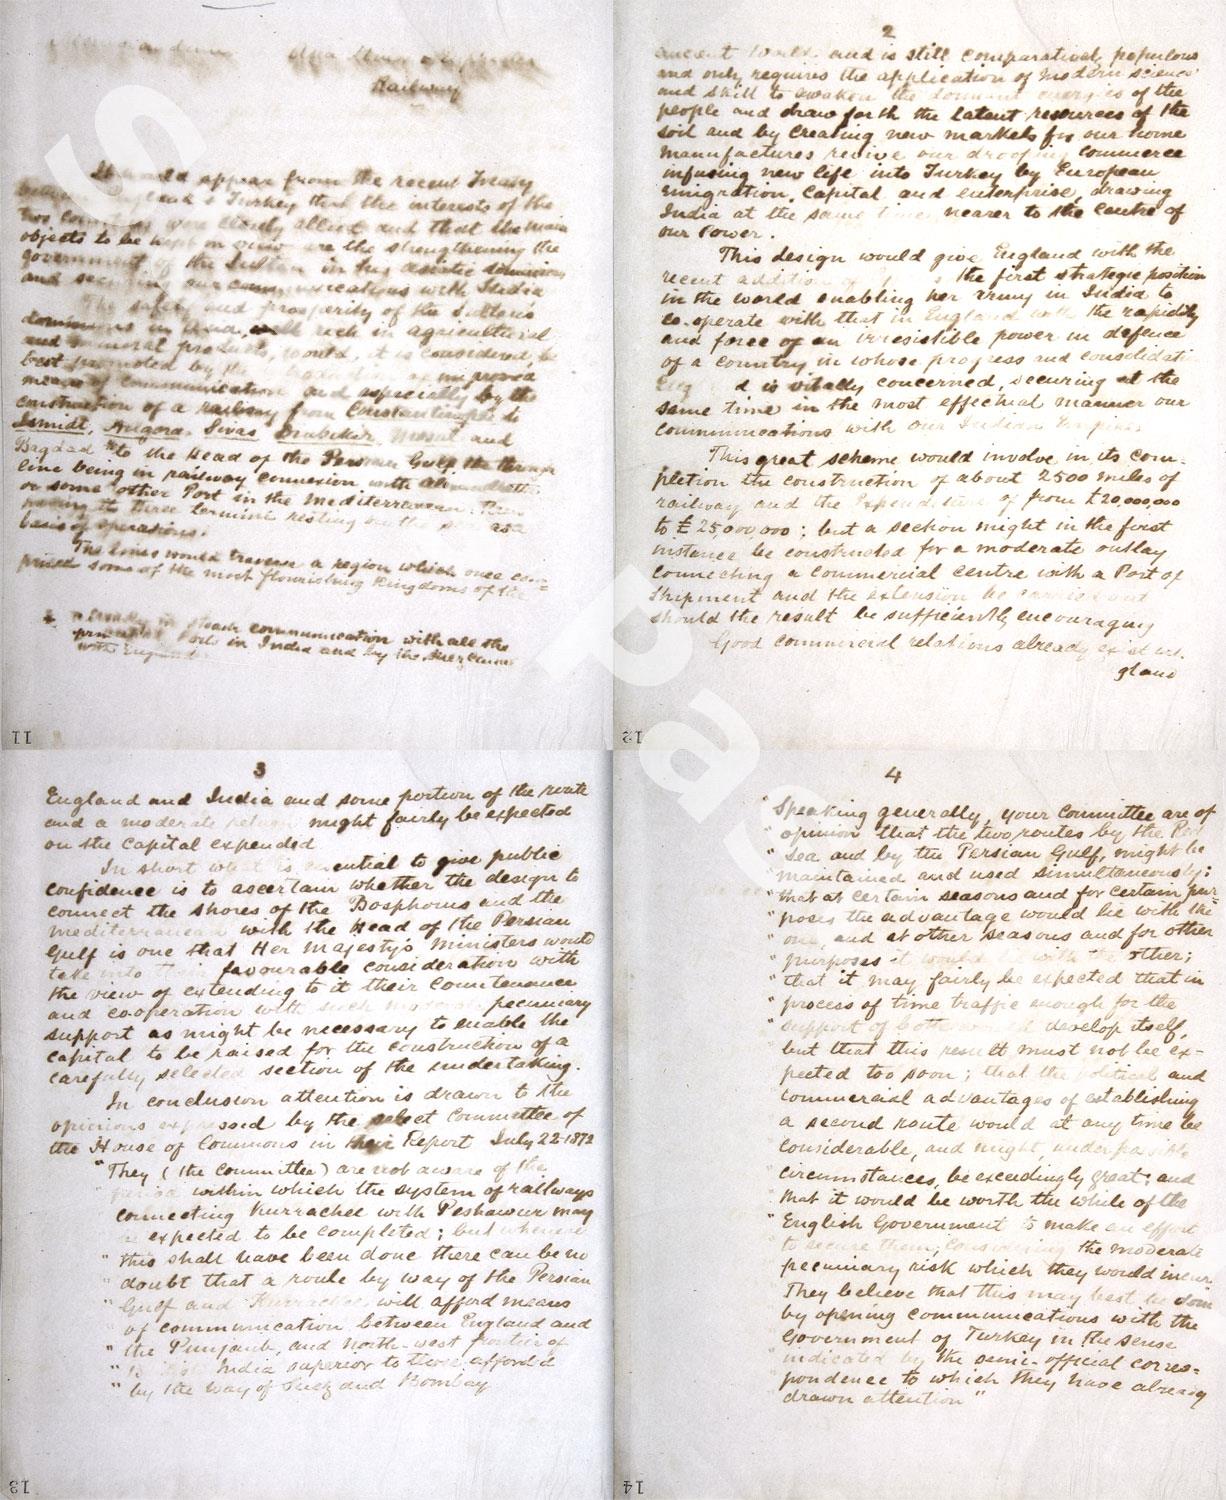 Memorandum Asia Minor & Euphrates
Railway
It would appear from the recent Treaty
between England & Turkey that the interests of the
two countries were closely allied and that the main
objects to be kept in view are the strengthening the
government of the Sultan in his Asiatic dominions
and securing our communications with India
The safety and prosperity of the Sultan's
dominions in Asia, well rich in agricultural
and mineral products, would, it is considered, be
best promoted by the introduction of improved
means of communication and especially by the
construction of a railway from Constantinople to
Ismidt, Angora, Sivas Diabekir, Mosul and
Bagdad to the Head of the Persian Gulf, the through
line being in railway connexion with Alexandretta
or some other Port in the Mediterranean. Then
having its three termini resting on the sea as a
basis of operations.
The lines would traverse a region which once com-
prised some of the most flourishing Kingdoms of the
already in steam communication with all the
principal Ports in India and by the Suez Canal
with England
11
2
ancient World and is still comparatively populous
and only requires the application of modern science
and skill to awaken the dormant energies of the
people and draw forth the latent resources of the
soil and by creating new markets for our home
manufactures revive our drooping commerce
infusing new life into Turkey by European
emigration, Capital and enterprise, drawing
India at the same time nearer to the Centre of
our Power.
This design would give England with the
recent addition of the first strategic position
in the world enabling her army in India to
co-operate with that in England with the rapidity
and force of an irresistible power in defence
of a country in whose progress and consolidation
England is vitally concerned, securing at the
same time in the most effectual manner our
communications with our Indian Empire.
This great scheme would involve in its com-
pletion the construction of about 2500 miles of
railway and the Expenditure of from £20,000,000
to £25,000,000; but a section might in the first
instance be constructed for a moderate outlay
connecting a commercial centre with a Port of
Shipment and the extension be carried out
should the result be sufficiently encouraging
Good commercial relations already exist
gland
12
3
England and India and some portion of the route
and a moderate return might fairly be expected
on the capital expended
In short what is essential to give public
confidence is to ascertain whether the design to
connect the shores of the Bosphorus and the
Mediterranean with the Head of the Persian
Gulf is one that Her Majesty's Ministers would
take into their favourable consideration with
the view of extending to it their Countenance
and cooperation with such moderate pecuniary
support as might be necessary to enable the
capital to be raised for the construction of a
carefully selected section of the undertaking.
In conclusion attention is drawn to the
opinions expressed by the select Committee of
the House of Commons in their Report July 22-1872
"They (the Committee) are not aware of the
period within which the system of railways
connecting Kurrachee with Peshawur may
be expected to be completed; but whenever
"this shall have been done there can be no
" doubt that a route by way of the Persian
" Gulf and Kurrachee will afford means
" of communication between England and
" the Punjaub, and North-west frontier of
" India superior to those afforded
" by the way of Suez and Bombay
13
4
"Speaking generally, your Committee are of
" opinion that the two routes by the Red
" Sea and by the Persian Gulf, might be
" maintained and used simultaneously;
" that at certain seasons and for certain pur-
" poses the advantage would lie with the
" one, and at other seasons and for other
" purposes it would lie with the other;
" that it may fairly be expected that in
" process of time traffic enough for the
" support of both would develop itself,
but that this result must not be ex-
pected too soon; that the political and
commercial advantages of establishing
a second route would at any time be
considerable, and might, under possible
circumstances, be exceedingly great; and
" that it would be worth the while of the
" English Government to make an effort
" to secure them, considering the moderate
pecuniary risk which they would incur.
They believe that this may best be done
by opening communications with the
Government of Turkey in the sense
" indicated by the semi-official corres-
" pondence to which they have already
drawn attention"
14